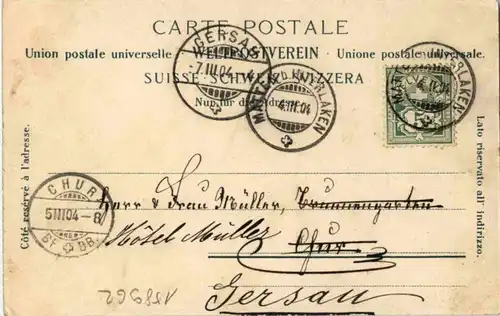 CARTE POSTALE
Union postale universelle WELTPOSTVEREIN Unione postale universale.
SUISSE SCHWEIZ SVIZZERA
Nur für die Adresse.
GERSAU
-7.III.04
MATTEN b/INTERLAKEN
4.III.04
MATTEN b/INTERLAKEN
4.III.04
CHUR
5III04-8
BF. BB.
Côté reservé à l'adresse.
Lato riservato all' indirizzo.
Herr & Frau Müller, Brunnengarten
Hôtel Müller Chur
Gersau
158962